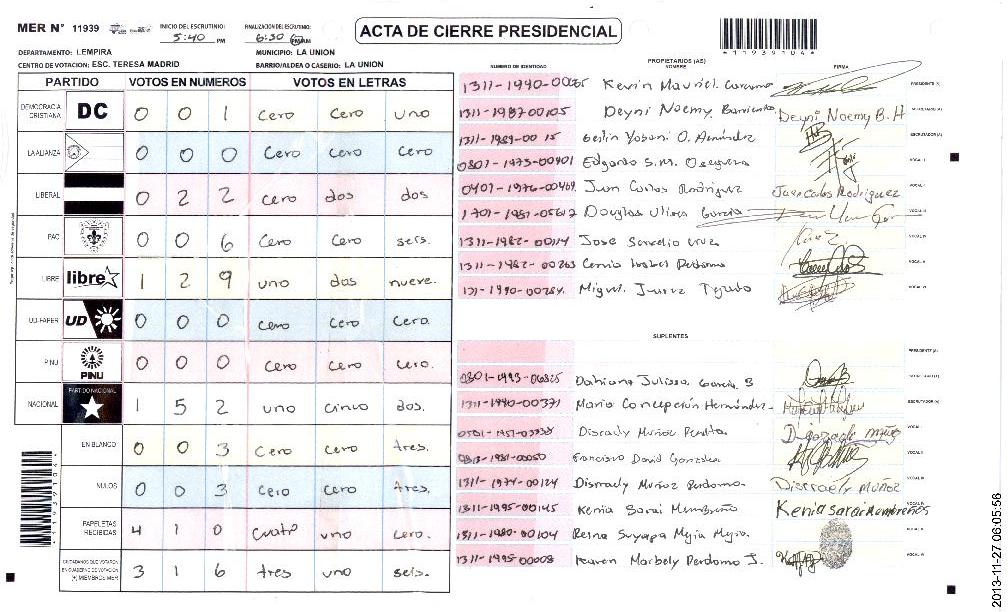 MER N° 11939
INICIO DEL ESCRUTINIO: 5:40 PM
FINALIZACION DEL ESCRUTINIO: 6:30 PM
ACTA DE CIERRE PRESIDENCIAL
*11939104*
DEPARTAMENTO: LEMPIRA
MUNICIPIO: LA UNION
CENTRO DE VOTACION: ESC. TERESA MADRID
BARRIO/ALDEA O CASERIO: LA UNION
PARTIDO VOTOS EN NUMEROS VOTOS EN LETRAS
DEMOCRACIA CRISTIANA DC 0 0 1 cero cero uno
LA ALIANZA 0 0 0 cero cero cero
LIBERAL 0 2 2 cero dos dos
PAC 0 0 6 cero cero seis.
LIBRE libre 1 2 9 uno dos nueve.
UD-FAPER UD 0 0 0 cero cero cero.
PINU PINU 0 0 0 cero cero cero.
NACIONAL PARTIDO NACIONAL 1 5 2 uno cinco dos.
EN BLANCO 0 0 3 cero cero tres.
NULOS 0 0 3 cero cero tres.
PAPELETAS RECIBIDAS 4 1 0 cuatro uno cero.
CIUDADANOS QUE VOTARON EN CUADERNO DE VOTACION (+) MIEMBROS MER 3 1 6 tres uno seis.
PROPIETARIOS (AS)
NUMERO DE IDENTIDAD NOMBRE FIRMA
Kevin PRESIDENTE (A)
1311-1987-00105 Deyni Noemy Barrientos Deyni Noemy B. H SECRETARIO (A)
1311-1989-00 15 Yobani O. Hernández ESCRUTADOR (A)
0801-1973-00401 Edgardo S.M. Oseguera VOCAL I
0401-1976-00469 Juan Carlos Rodriguez Juan Carlos Rodriguez VOCAL II
1701-1981-05612 Douglas Ulises Garcia VOCAL III
1311-1982-00114 Jose cruz VOCAL IV
1311-1982-00263 Isabel Perdomo VOCAL V
Miguel Juarez Tejada VOCAL VI
SUPLENTES
PRESIDENTE (A)
Dahiana Julissa Garcia B SECRETARIO (A)
1311-1990-00371 Maria Concepción Hernández ESCRUTADOR (A)
Muñoz Peralta VOCAL I
Francisco David Gonzales VOCAL II
1311-1974-00124 Disrraely Muñoz Perdomo Disrraely Muñoz VOCAL III
1311-1995-00145 Kenia Sarai Membreño Kenia Sarai Membreños VOCAL IV
1311-1980-00104 Reina Suyapa Mejia Mejia. VOCAL V
1311-1995-00008 Karen Marbely Perdomo J. VOCAL VI
2013-11-27 06:05:56